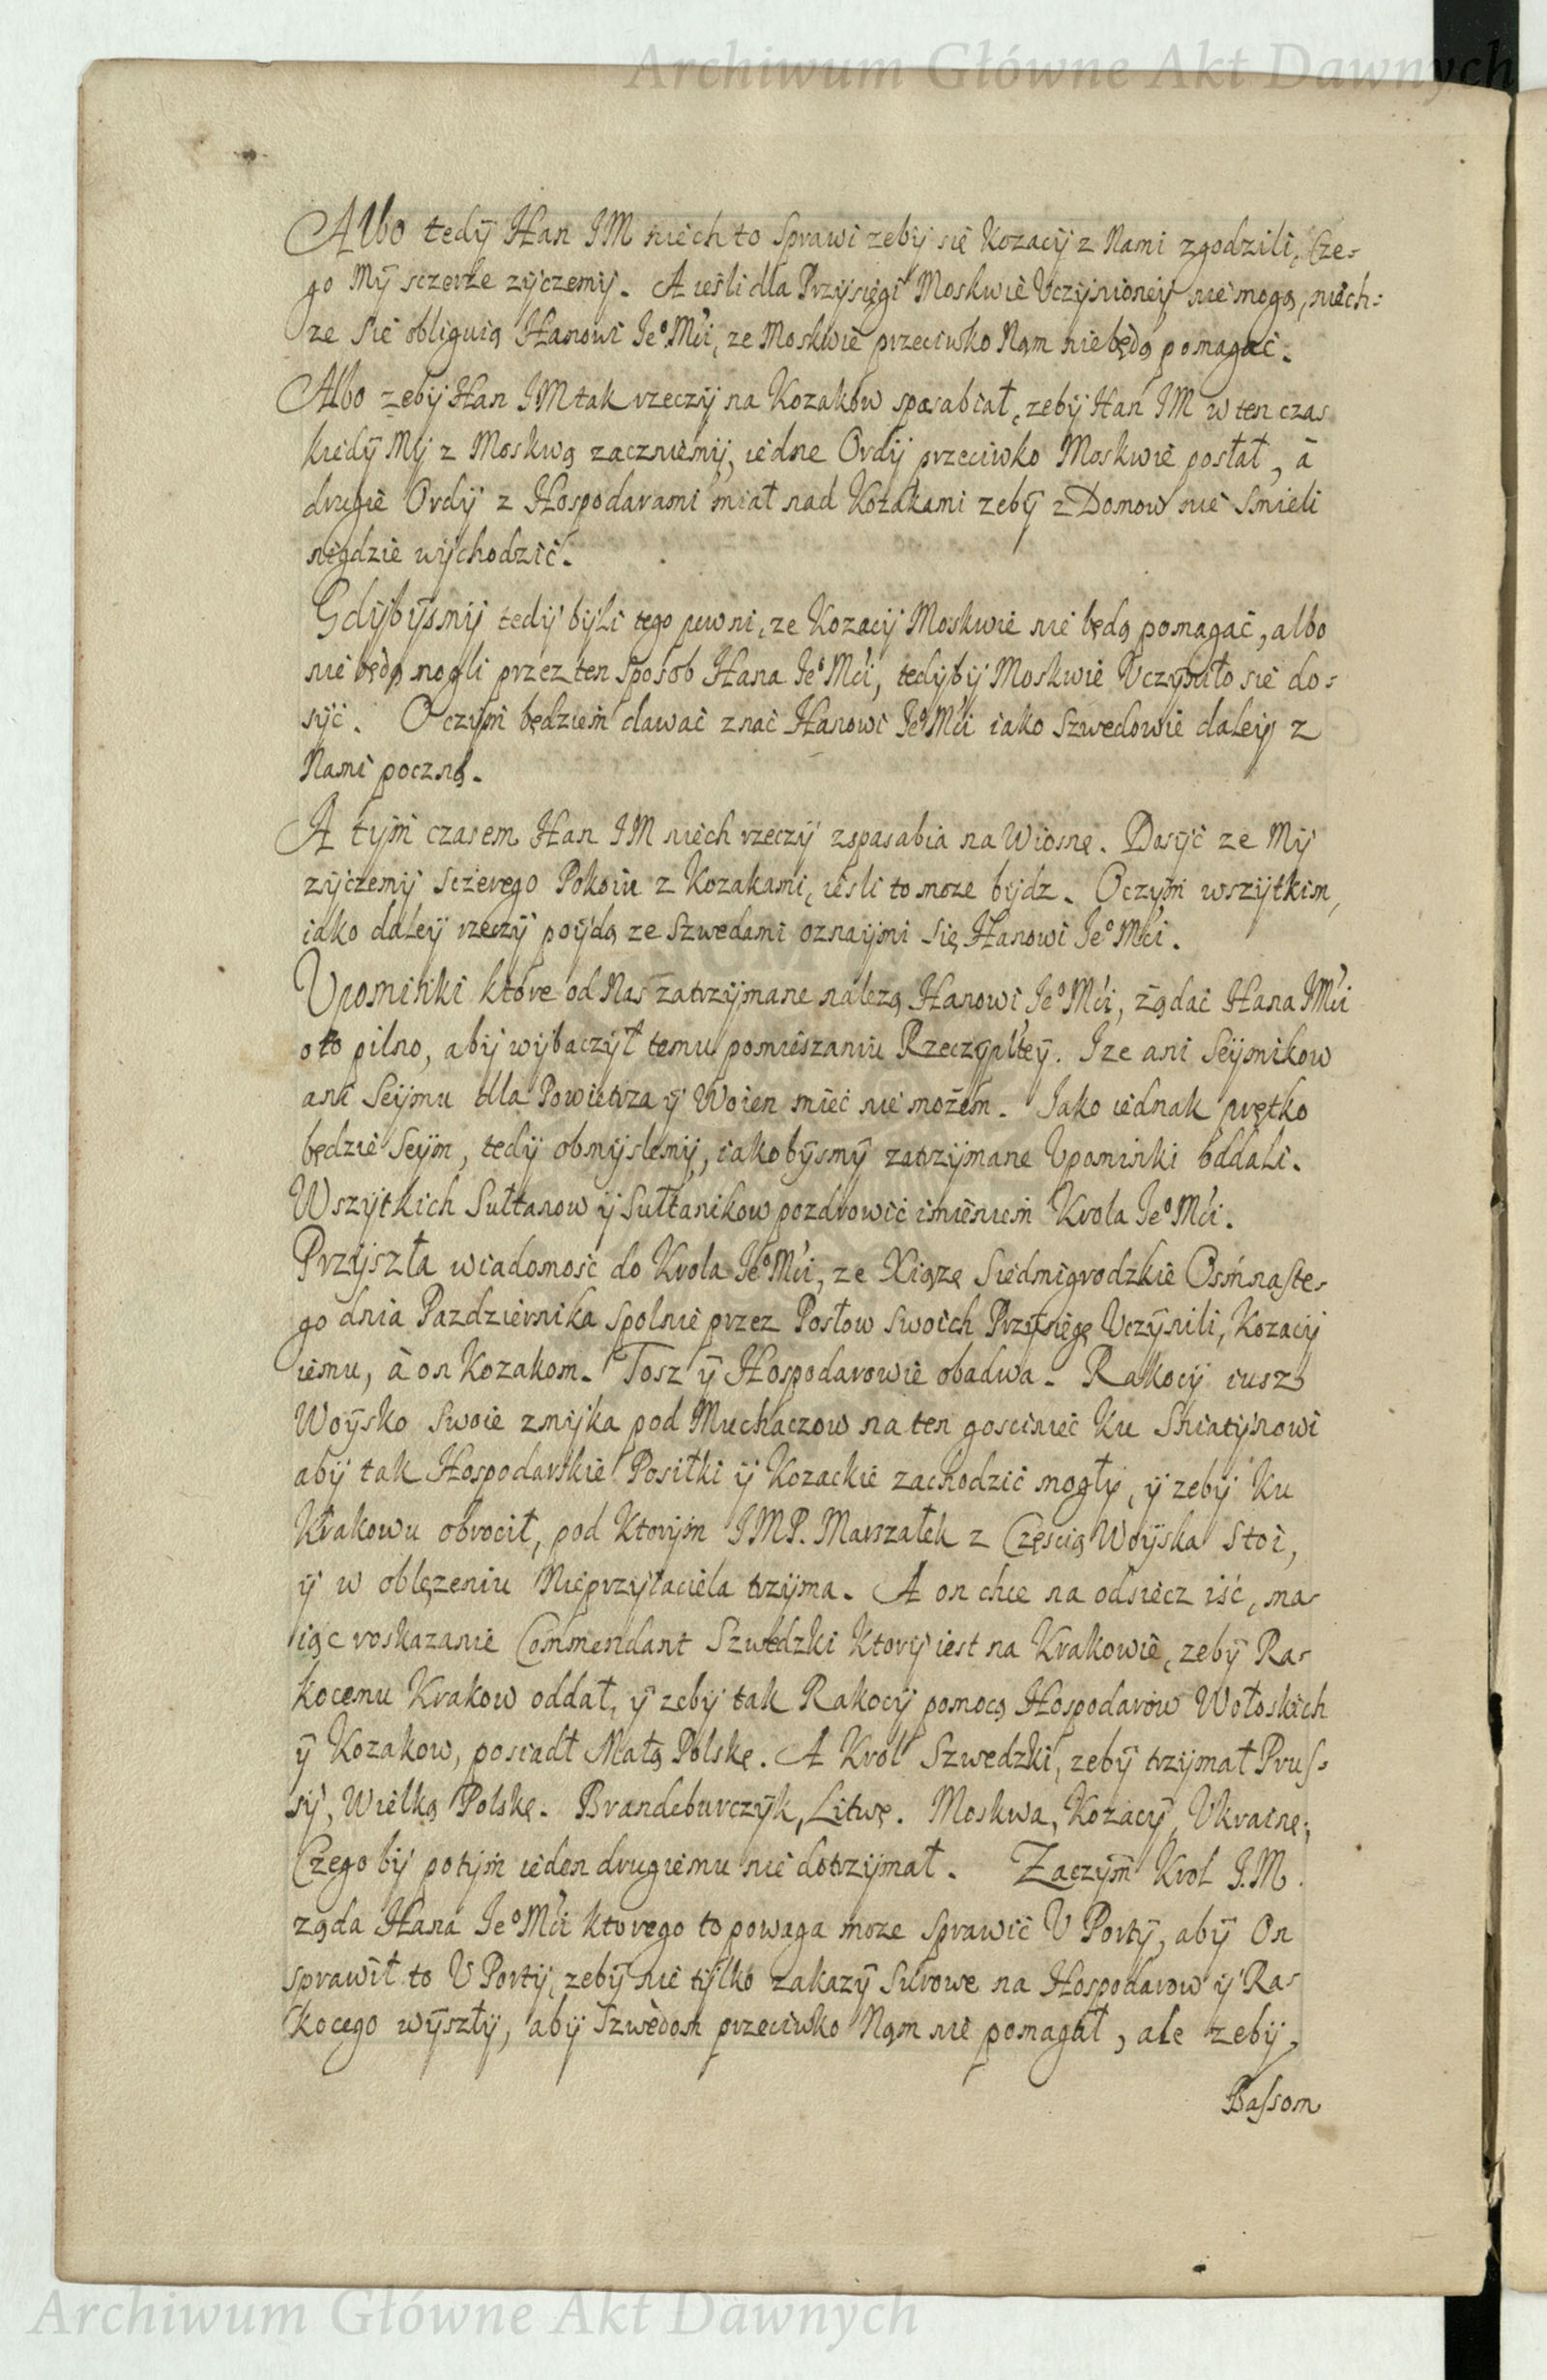 Archiwum Główne Akt Dawnych
Albo tedÿ Han IM niech to sprawi zebÿ się Kozacÿ z Nami zgodzili, Cze-
go Mÿ sczerze zÿczemÿ. A iesli dla Przÿsięgi Moskwie Vczÿnioneÿ nie mogą, niech-
ze Się obliguią Hanowi Ie° Mći, ze Moskwie przeciwko Nąm niebędą pomagać.
Albo zebÿ Han IM tak rzeczÿ na Kozaków sposabiał, zebÿ Han IM w ten czas
kiedÿ Mÿ z Moskwą zaczniemÿ, iedne Ordÿ przeciwko Moskwie posłał, à
drugie Ordÿ z Hospodarami miał nad Kozakami zebÿ z Domow nie smieli
nigdzie wÿchodzić.
Gdÿbÿsmÿ tedÿ bÿli tego pewni, ze Kozacÿ Moskwie nie będą pomagać, albo
nie będą mogli przez ten sposob Hana Ie° Mći, tedÿbÿ Moskwie Vczÿniło się do-
sÿć. Oczÿm będziem dawać znać Hanowi Ie° Mći iako Szwedowie daleiÿ z
Nami poczną.
A tÿm czasem Han IM niech rzeczÿ zsposabia na Wiosnę. Dosÿć ze Mÿ
zÿczemÿ Sczerego Pokoiu z Kozakami, iesli to moze bÿdz. Oczÿm wszÿtkim,
iako daleÿ rzeczÿ poÿdą ze Szwedami oznaÿmi się Hanowi Ie° Mći.
Vpominki które od Nas zatrzÿmane nalezą Hanowi Ie° Mći, ządać Hana IMći
oto pilno, abÿ wÿbaczÿł temu pomieszaniu Rzeczÿpłteÿ. Ize ani Seÿmikow
ani Seÿmu dla Powietrza ÿ Woien mieć nie możem. Iako iednak prętko
będzie Seÿm, tedÿ obmÿslemÿ, iakobÿsmÿ zatrzÿmane Vpominki oddali.
Wszÿtkich Sułtanow ÿ Sułtanikow pozdrowić imieniem Krola Ie° Mći.
Przÿszła wiadomość do Krola Ie° Mći, ze Xiąze Siedmigrodzkie Osḿnaste-
go dnia Pazdziernika spolnie przez Posłow swoich Przÿsięgę Vczÿnili, Kozacÿ
iemu, à on Kozakom. Tosz ÿ Hospodarowie obadwa. Rakocÿ iusz
Woÿsko swoie zmÿka pod Muchaczow na ten gosciniec ku Sniatÿnowi
abÿ tak Hospodarskie Positki ÿ Kozackie zachodzić mogłÿ, ÿ zebÿ ku
Krakowu obrocił, pod Ktorÿm IMP. Marszałek z Częscią Woÿska Stoi,
ÿ w oblęzeniu Nieprzÿiaciela trzÿma. A on chce na odsiecz iść, ma-
iąc roskazanie Commendant Szwedzki ktorÿ iest na Krakowie, zebÿ Ra-
kocemu Krakow oddał, ÿ zebÿ tak Rakocÿ pomocą Hospodarów Wołoskich
ÿ Kozakow, posiadł Małą Polskę. A Krol Szwedzki, zebÿ trzÿmał Prus-
sÿ, Wielką Polskę. Brandeburczÿk, Litwę. Moskwa, Kozacÿ, Vkrainę,
Czego bÿ potÿm ieden drugiemu nie dotrzÿmał. Zaczÿm Krol I.M.
ząda Hana Ie° Mći ktorego to powaga moze sprawić V Portÿ, abÿ On
sprawił to V Portÿ, zebÿ nie tÿlko zakazÿ surowe na Hospodarow ÿ Ra-
kocego wÿszłÿ, abÿ Szwedom przeciwko Nąm nie pomagał, ale zebÿ
Bassom
Archiwum Główne Akt Dawnych